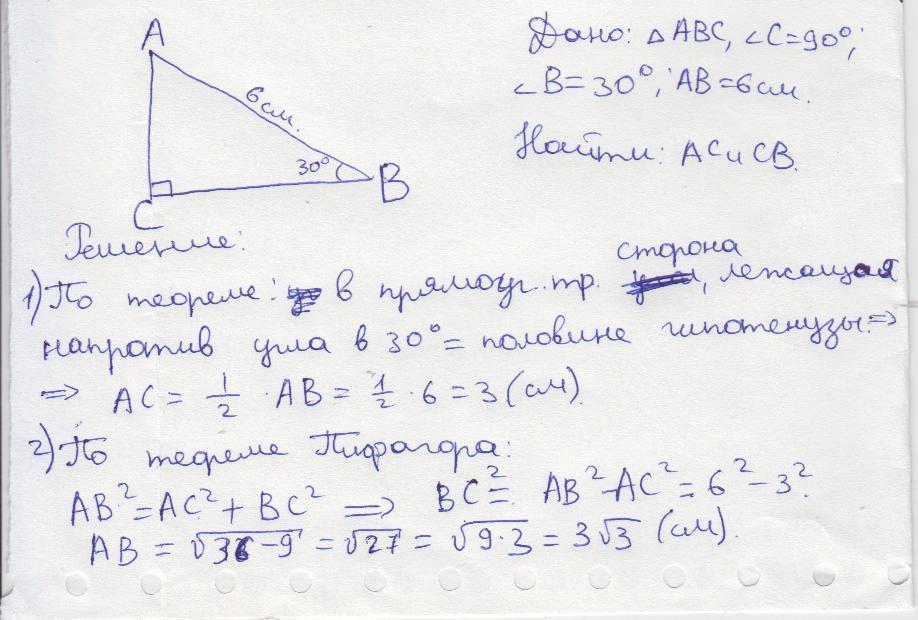 A
6 см.
30°
B
C
Дано: △ABC, ∠C=90°;
∠B=30°; AB=6см.
Найти: AC и CB.
Решение:
1) По теореме: в прямоуг. тр. сторона, лежащая
напротив угла в 30° = половине гипотенузы. ⇒
⇒ AC = 1/2 · AB = 1/2 · 6 = 3 (см)
2) По теореме Пифагора:
AB² = AC² + BC² ⇒ BC² = AB² − AC² = 6² − 3².
AB = √36−9 = √27 = √9·3 = 3√3 (см).